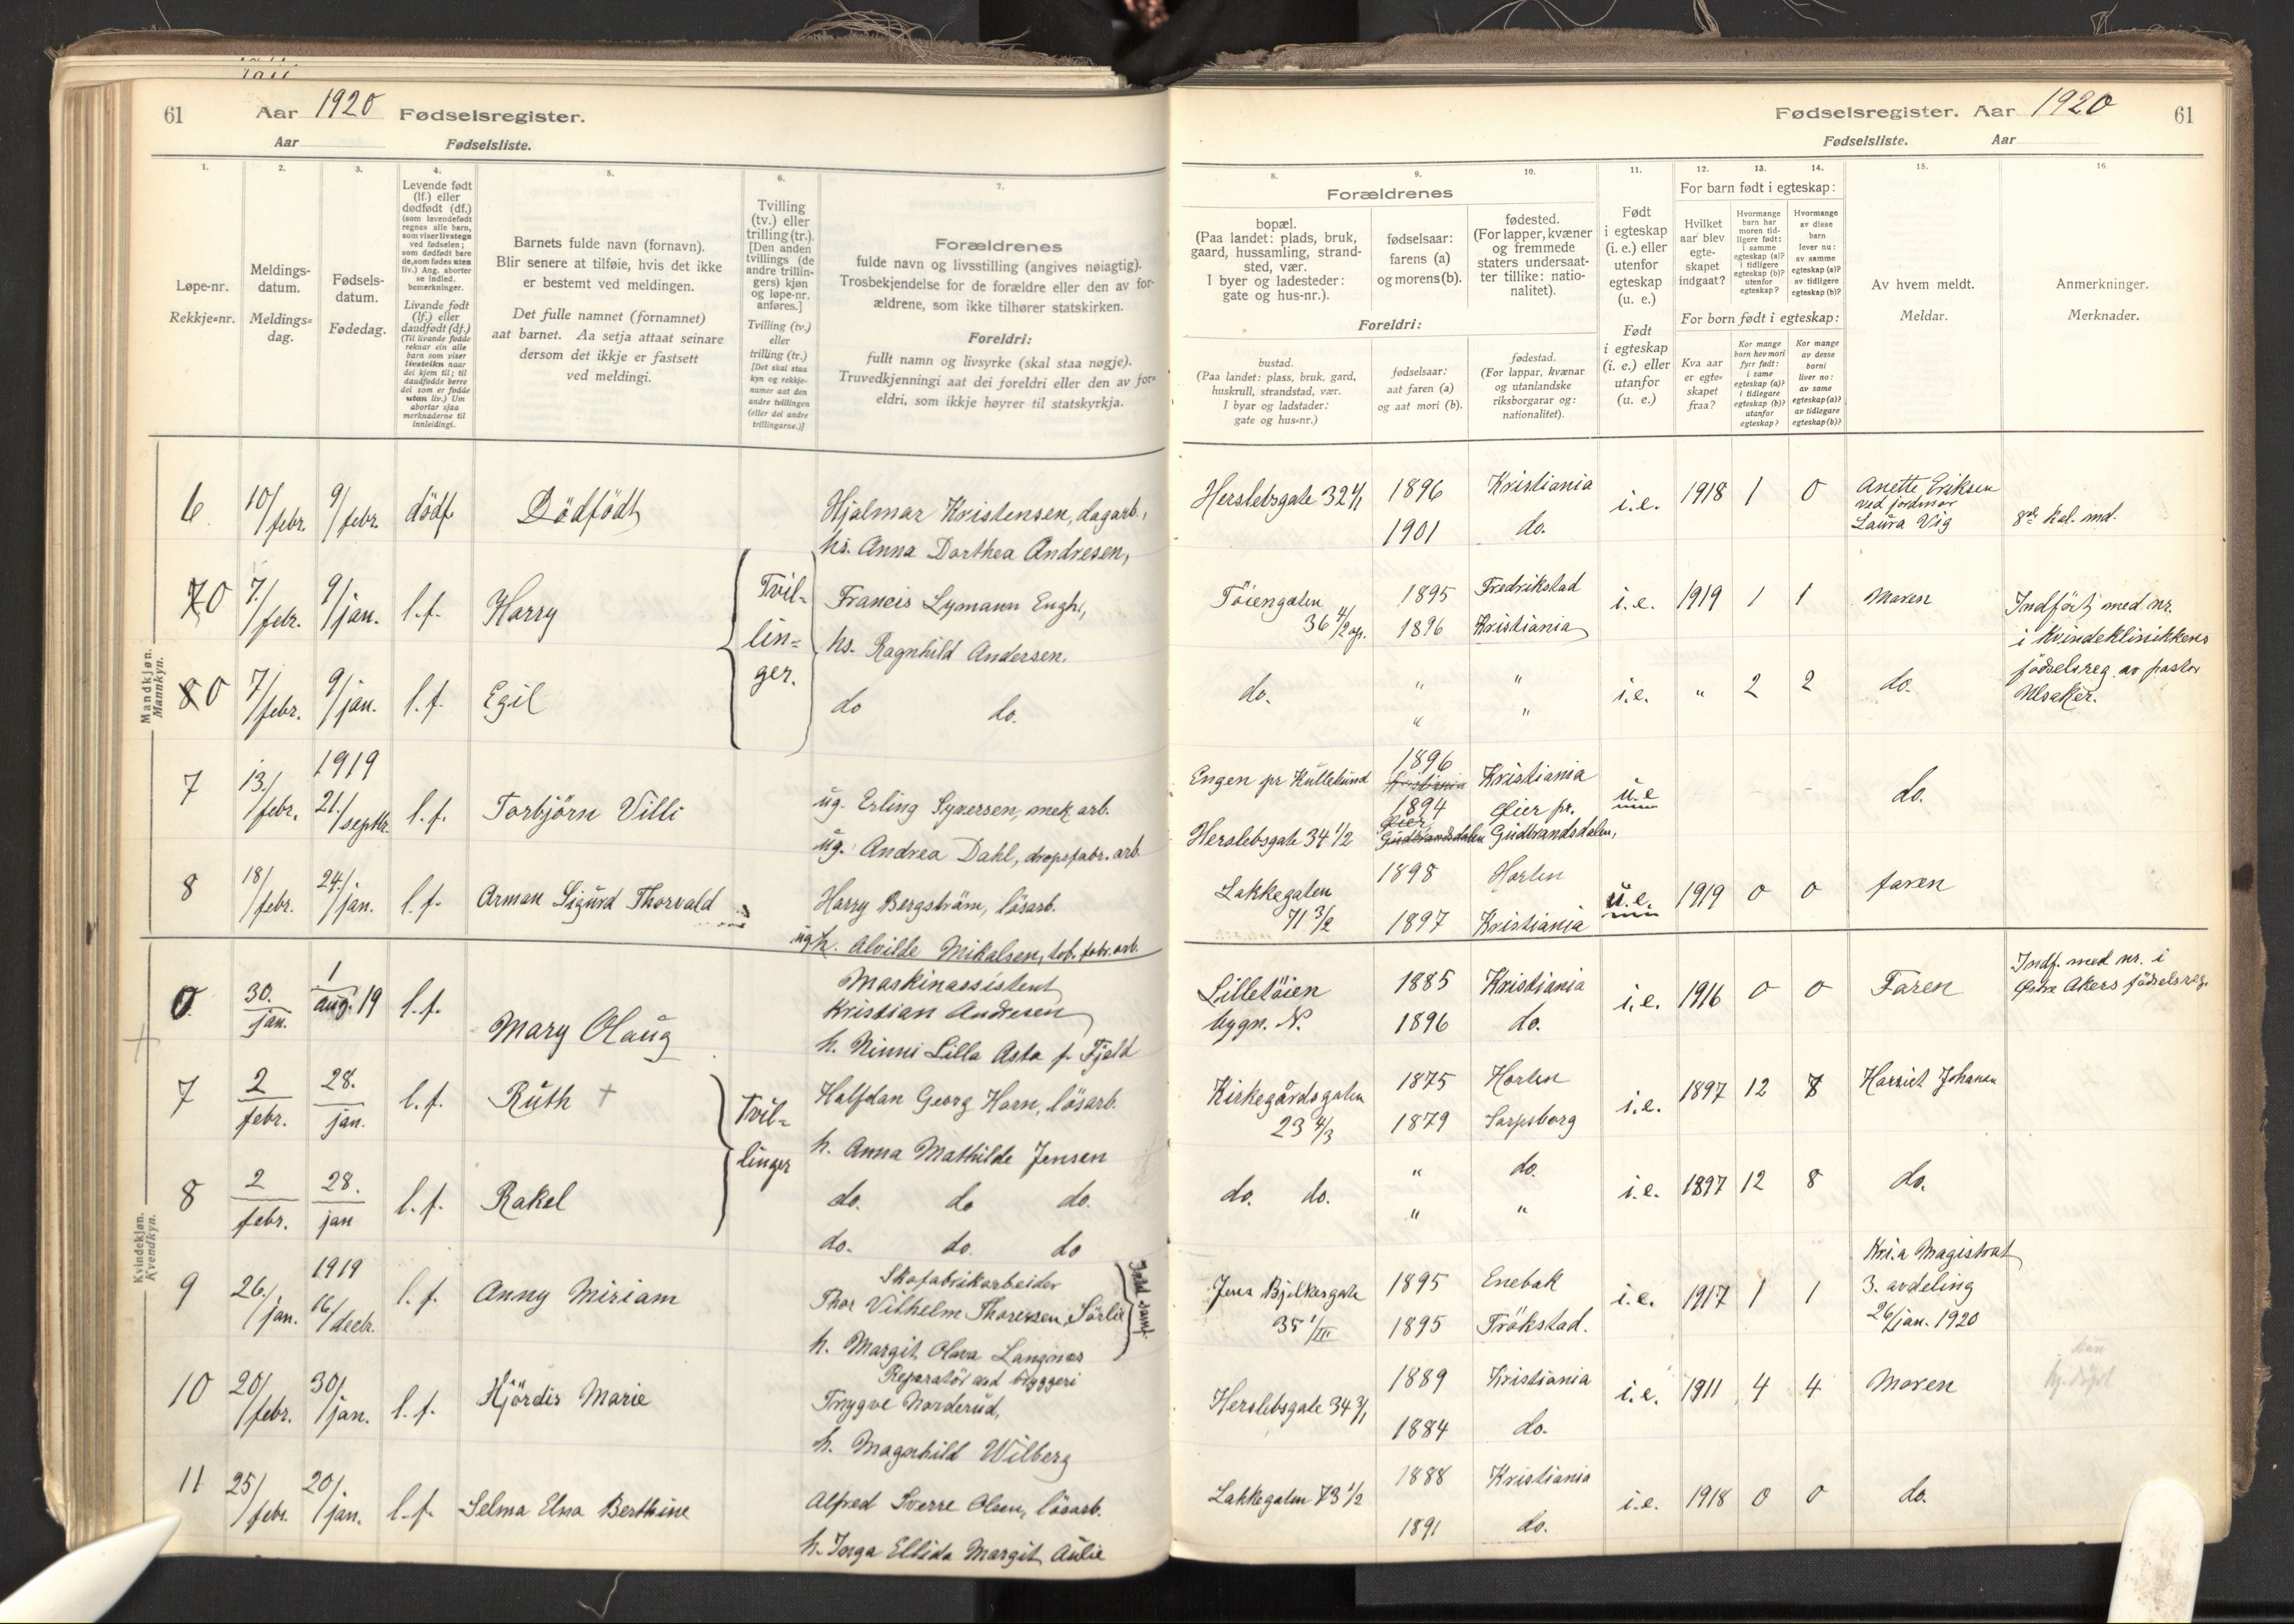 61
Aar 1920 Fødselsregister.
Aar Fødselsliste.
1.
Løpe-nr.
Rekkje=nr.
2.
Meldings-
datum.
Meldings=
dag.
3.
Fødsels-
datum.
Fødedag.
4.
Levende født
(lf.) eller
dødfødt (df.)
(som levendefødt
regnes alle barn,
som viser livstegn
ved fødselen;
som dødfødt bare
de, som fødes uten
liv.) Ang. aborter
se indled.
bemerkninger.
Livande født
(lf.) eller
daudfødt (df.)
(Til livande fødde
reknar ein alle
barn som viser
livsteikn naar
dei kjem til; til
daudfødde berre
dei som er fødde
utan liv.) Um
abortar sjaa
merknaderne til
innleidingi.
5.
Barnets fulde navn (fornavn).
Blir senere at tilføie, hvis det ikke
er bestemt ved meldingen.
Det fulle namnet (fornamnet)
aat barnet. Aa setja attaat seinare
dersom det ikkje er fastsett
ved meldingi.
6.
Tvilling
(tv.) eller
trilling (tr.).
[Den anden
tvillings (de
andre trillin-
gers) kjøn
og løpe-nr.
anføres.]
Tvilling (tv.)
eller
trilling (tr.)
[Det skal staa
kyn og rekkje-
numer aat den
andre tvillingen
(eller dei andre
trillingarne.)]
7.
Forældrenes
fulde navn og livsstilling (angives nøiagtig).
Trosbekjendelse for de forældre eller den av for-
ældrene, som ikke tilhører statskirken.
Foreldri:
fullt namn og livsyrke (skal staa nøgje).
Truvedkjenningi aat dei foreldri eller den av for=
eldri, som ikkje høyrer til statskyrkja.
Mandkjøn.
Mannkyn.
6 10/febr. 9/febr. dödf. Dödfödt Hjalmar Kristensen, dagarb.,
hs. Anna Dorthea Andresen,
70 7./febr. 9/jan. l.f. Harry Tvil= Francis Lymann Engh,
lin= hs. Ragnhild Andersen.
80 7/febr. 9/jan. l.f. Egil ger. do do.
7 13./febr. 1919 21./septbr. l.f. Torbjörn Villi ug. Erling Syversen, mek. arb.
ug. Andrea Dahl, dropsfabr. arb.
8 18/febr. 24./jan. l.f. Arman Sigurd Thorvald Harry Bergström, lösarb.
ug h. Alvilde Mikalsen, tob. fabr. arb.
Kvindekjøn.
Kvendkyn.
0 30. jan. 1 aug. 19 l.f. Mary Olaug Maskinassistent
Kristian Andresen
h. Ninni Lilla Asta f. Fjeld
7 2 febr. 28. jan. l.f. Ruth + Tvil= Halfdan Georg Horn, lösarb.
linger h. Anna Mathilde Jensen
8 2 febr. 28. jan l.f. Rakel do. do do.
do. do. do
9 26./jan. 1919 16/decbr. l.f. Anny Miriam Skofabrikarbeider
Thor Vilhelm Thoresen, Sörlie
h. Margit Olava Langnes
10 20/febr. 30/jan. l.f. Hjördis Marie Reparatör ved bryggeri
Trygve Norderud,
h. Magnhild Wilberg
11 25/febr. 20/jan. l.f. Selma Elna Berthine Alfred Sverre Olsen, lösarb.
h. Inga Ellida Margit Aulie
Fødselsregister. Aar 1920 61
Fødselsliste. Aar
8.
9.
10.
Forældrenes
bopæl.
(Paa landet: plads, bruk,
gaard, hussamling, strand-
sted, vær.
I byer og ladesteder:
gate og hus-nr.).
fødselsaar:
farens (a)
og morens (b).
fødested.
(For lapper, kvæner
og fremmede
staters undersaat-
ter tillike: natio-
nalitet).
Foreldri:
bustad.
(Paa landet: plass, bruk, gard,
huskrull, strandstad, vær.
I byar og ladstader:
gate og hus=nr.)
fødselsaar:
aat faren (a)
og aat mori (b).
fødestad.
(For lappar, kvænar
og utanlandske
riksborgarar og:
nationalitet).
11.
Født
i egteskap
(i. e.) eller
utenfor
egteskap
(u. e.)
Født
i egteskap
(i. e.) eller
utanfor
egteskap
(u. e.)
12. 13. 14.
For barn født i egteskap:
Hvilket
aar blev
egte-
skapet
indgaat?
Hvormange
barn har
moren tid-
ligere født:
i samme
egteskap (a)?
i tidligere
egteskap (b)?
utenfor
egteskap?
Hvormange
av disse
barn
lever nu:
av samme
egteskap (a)?
av tidligere
egteskap (b)?
For born født i egteskap:
Kva aar
er egte=
skapet
fraa?
Kor mange
born hev mori
fyrr født:
i same
egteskap (a)?
i tidlegare
egteskap (b)?
utanfor
egteskap?
Kor mange
av desse
borni
liver no:
av same
egteskap (a)?
av tidlegare
egteskap (b)?
15.
Av hvem meldt.
Meldar.
16.
Anmerkninger.
Merknader.
Herslebsgate 32 4/1 1896 Kristiania i.e. 1918 1 0 Anette Eriksen
ved jordmor
1901 do. Laura Vig 8de kal. md.
Töiengaten 1895 Fredrikstad i.e. 1919 1 1 Moren Indfört med nr.
36 4/2 op. 1896 Kristiania i Kvindeklinikkens
do. " " i.e. " 2 2 do. födselsreg. av pastor
" " Ulsaker.
Engen pr Kullebund 1896 Kristiania Kristiania u.e - - do.
Herslebsgate 34 1/2 1894 Öier Gudbrandsdalen Öier pr. Gudbrandsdalen,
Lakkegaten 1898 Horten u.e. 1919 0 0 faren
71 3/2 1897 Kristiania
Lilletöien 1885 Kristiania i.e. 1916 0 0 Faren Indf. med nr. i
bygn. N. 1896 do. Östre Akers födselsreg.
Kirkegårdsgaten 1875 Horten i.e. 1897 12 8
23 4/3 1879 Sarpsborg
do. do. " do. i.e. 1897 12 8 do.
" "
Jens Bjelkesgate 1895 Enebak i.e. 1917 1 1 Kri.a Magistrat
35 1/III 1895 Trökstad. 3. avdeling
26/jan. 1920
Herslebsgate 34 3/1 1889 Kristiania i.e. 1911 4 4 Moren
1884 do.
Lakkegaten 73 1/2 1888 Kristiania i.e. 1918 0 0 do.
1891 do.